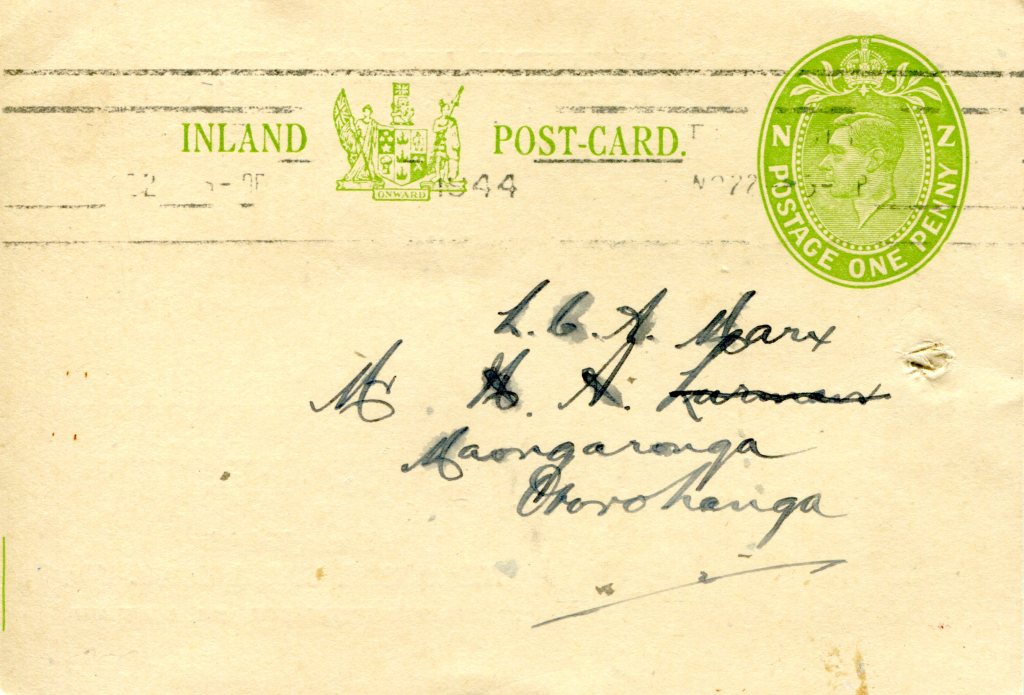 INLAND POST-CARD.
ONWARD
1944
N Z
POSTAGE ONE PENNY
L. C. A. Marx
Mr H. A. Larman
Maongaronga
Otorohanga